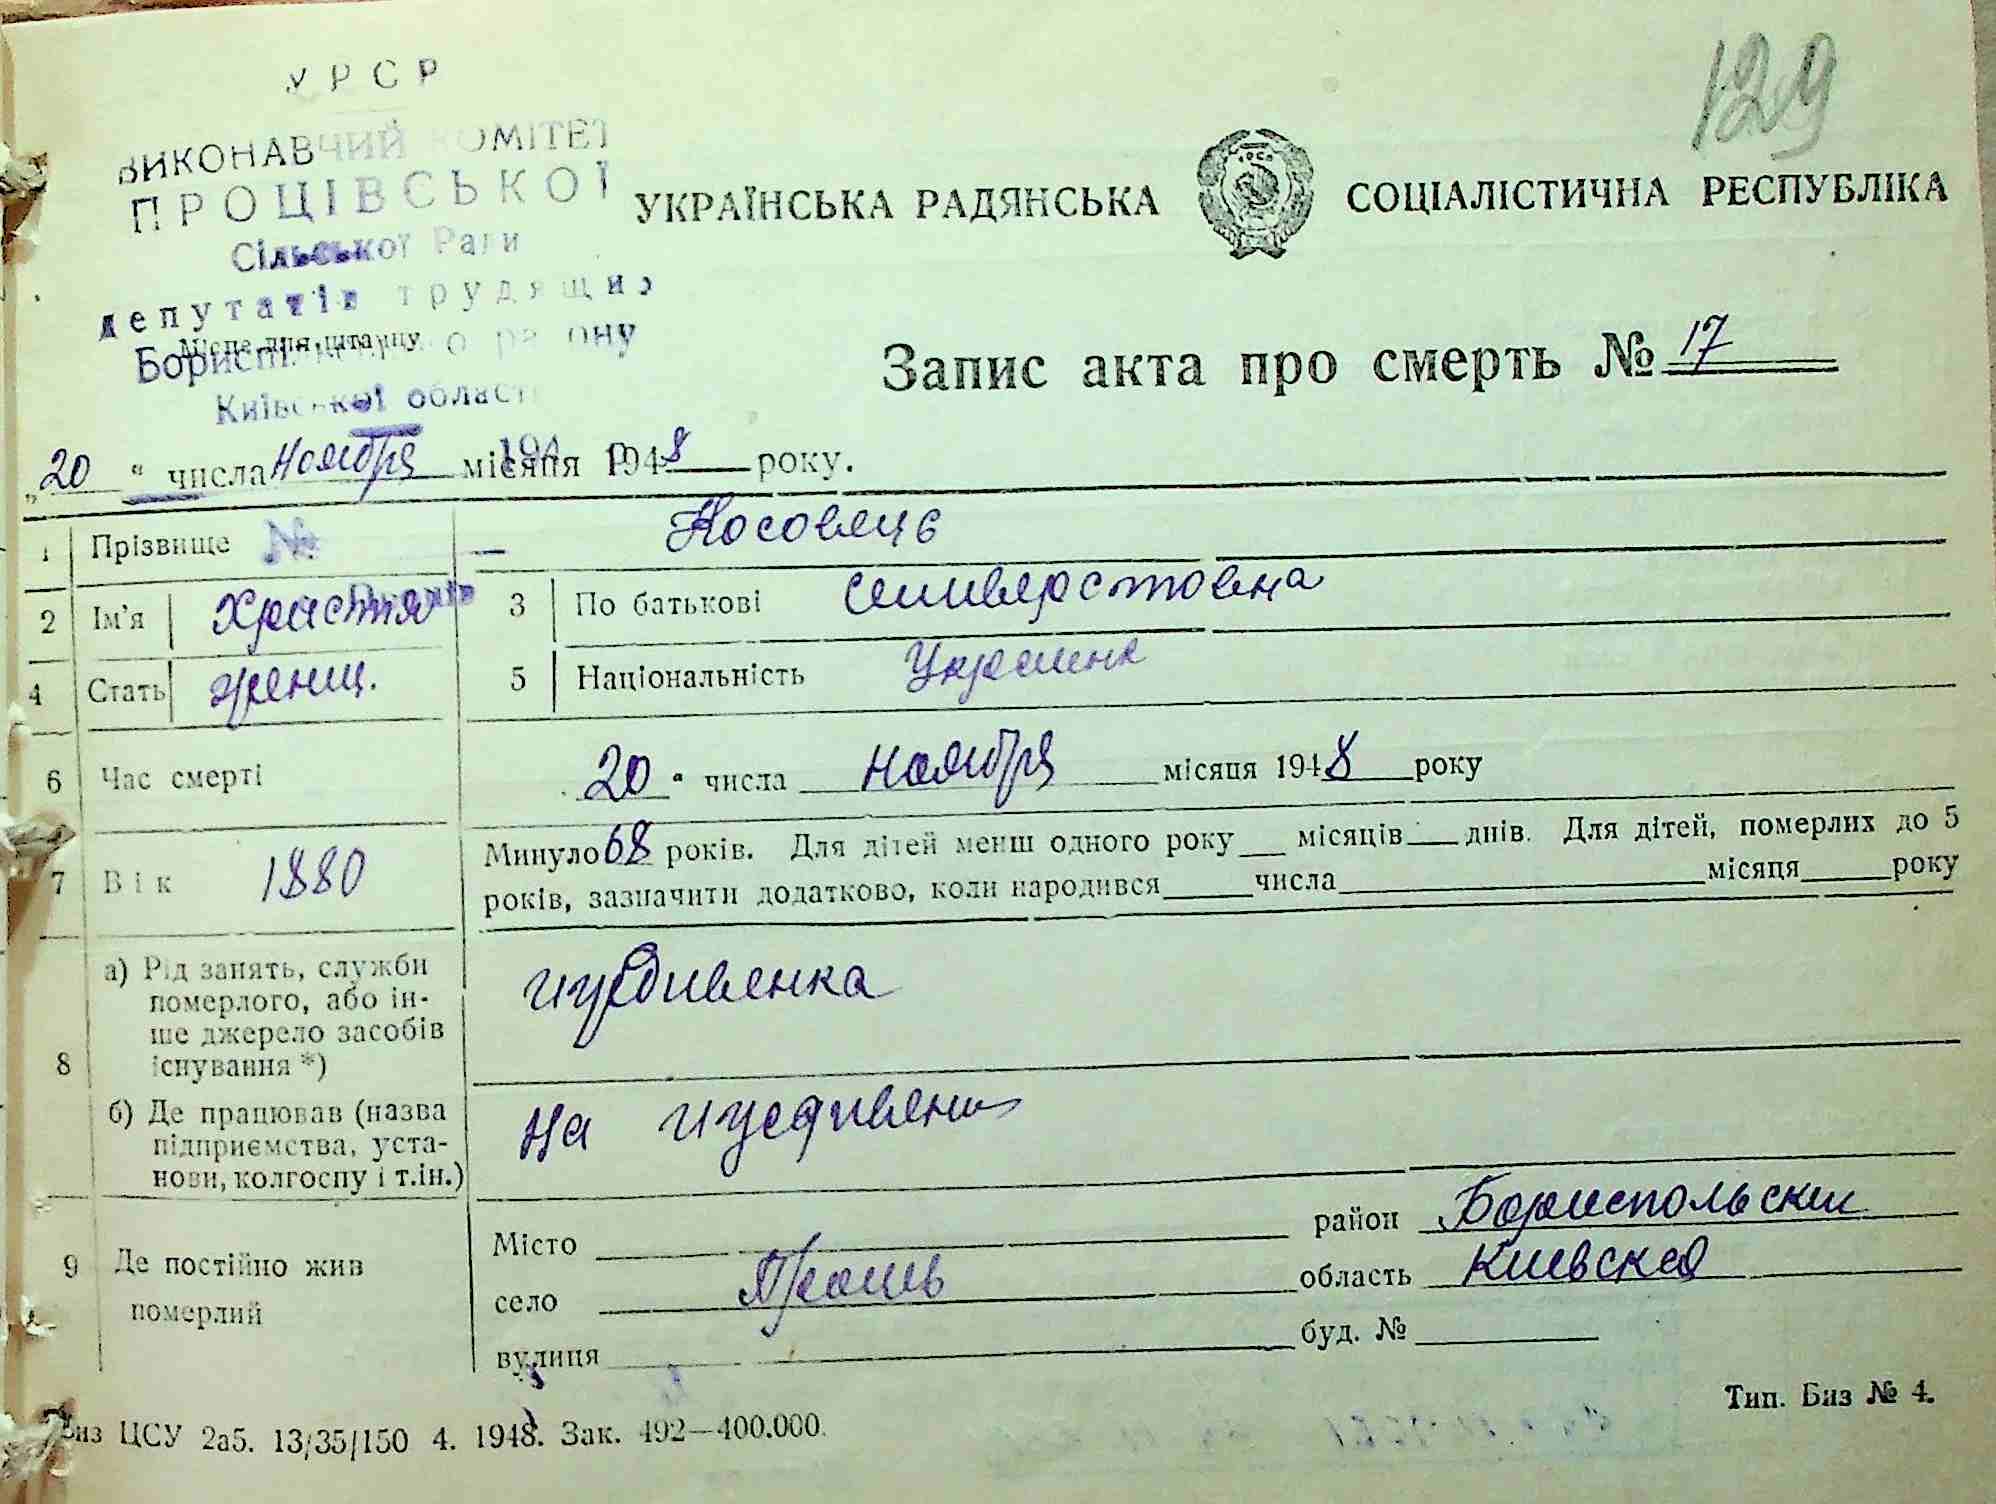 129
УРСР
ВИКОНАВЧИЙ КОМІТЕТ
ПРОЦІВСЬКОЇ
Сільської Ради
депутатів трудящих
Місце для штампу
Бориспільського району
Київської області
УКРАЇНСЬКА РАДЯНСЬКА СОЦІАЛІСТИЧНА РЕСПУБЛІКА
Запис акта про смерть № 17
„20“ числа Ноября місяця 1948 року.
1 Прізвище Носовець
2 Ім'я Христя 3 По батькові Селиверстовна
4 Стать женщ. 5 Національність Украинк
6 Час смерті 20 “ числа ноября місяця 1948 року
7 Вік 1880 Минуло 68 років. Для дітей менш одного року місяців днів. Для дітей, померлих до 5
років, зазначити додатково, коли народився числа місяця року
8 а) Рід занять, служби
померлого, або ін-
ше джерело засобів
існування *)
иждивенка
б) Де працював (назва
підприємства, уста-
нови, колгоспу і т.ін.)
На иждивении
9 Де постійно жив
померлий
Місто район Бориспольский
село область Киевская
вулиця буд. №
Биз ЦСУ 2а5. 13/35/150 4. 1948. Зак. 492—400.000.
Тип. Биз № 4.